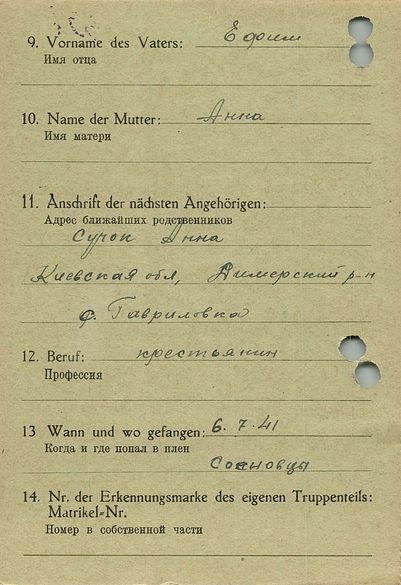 9. Vorname des Vaters: Ефим
Имя отца
10. Name der Mutter: Анна
Имя матери
11. Anschrift der nächsten Angehörigen:
Адрес ближайших родственников
Сучок Анна
Киевская обл, Димерский р-н
с. Гавриловка
12. Beruf: крестьянин
Профессия
13 Wann und wo gefangen: 6.7.41
Когда и где попал в плен
Сосновцы
14. Nr. der Erkennungsmarke des eigenen Truppenteils:
Matrikel-Nr.
Номер в собственной части